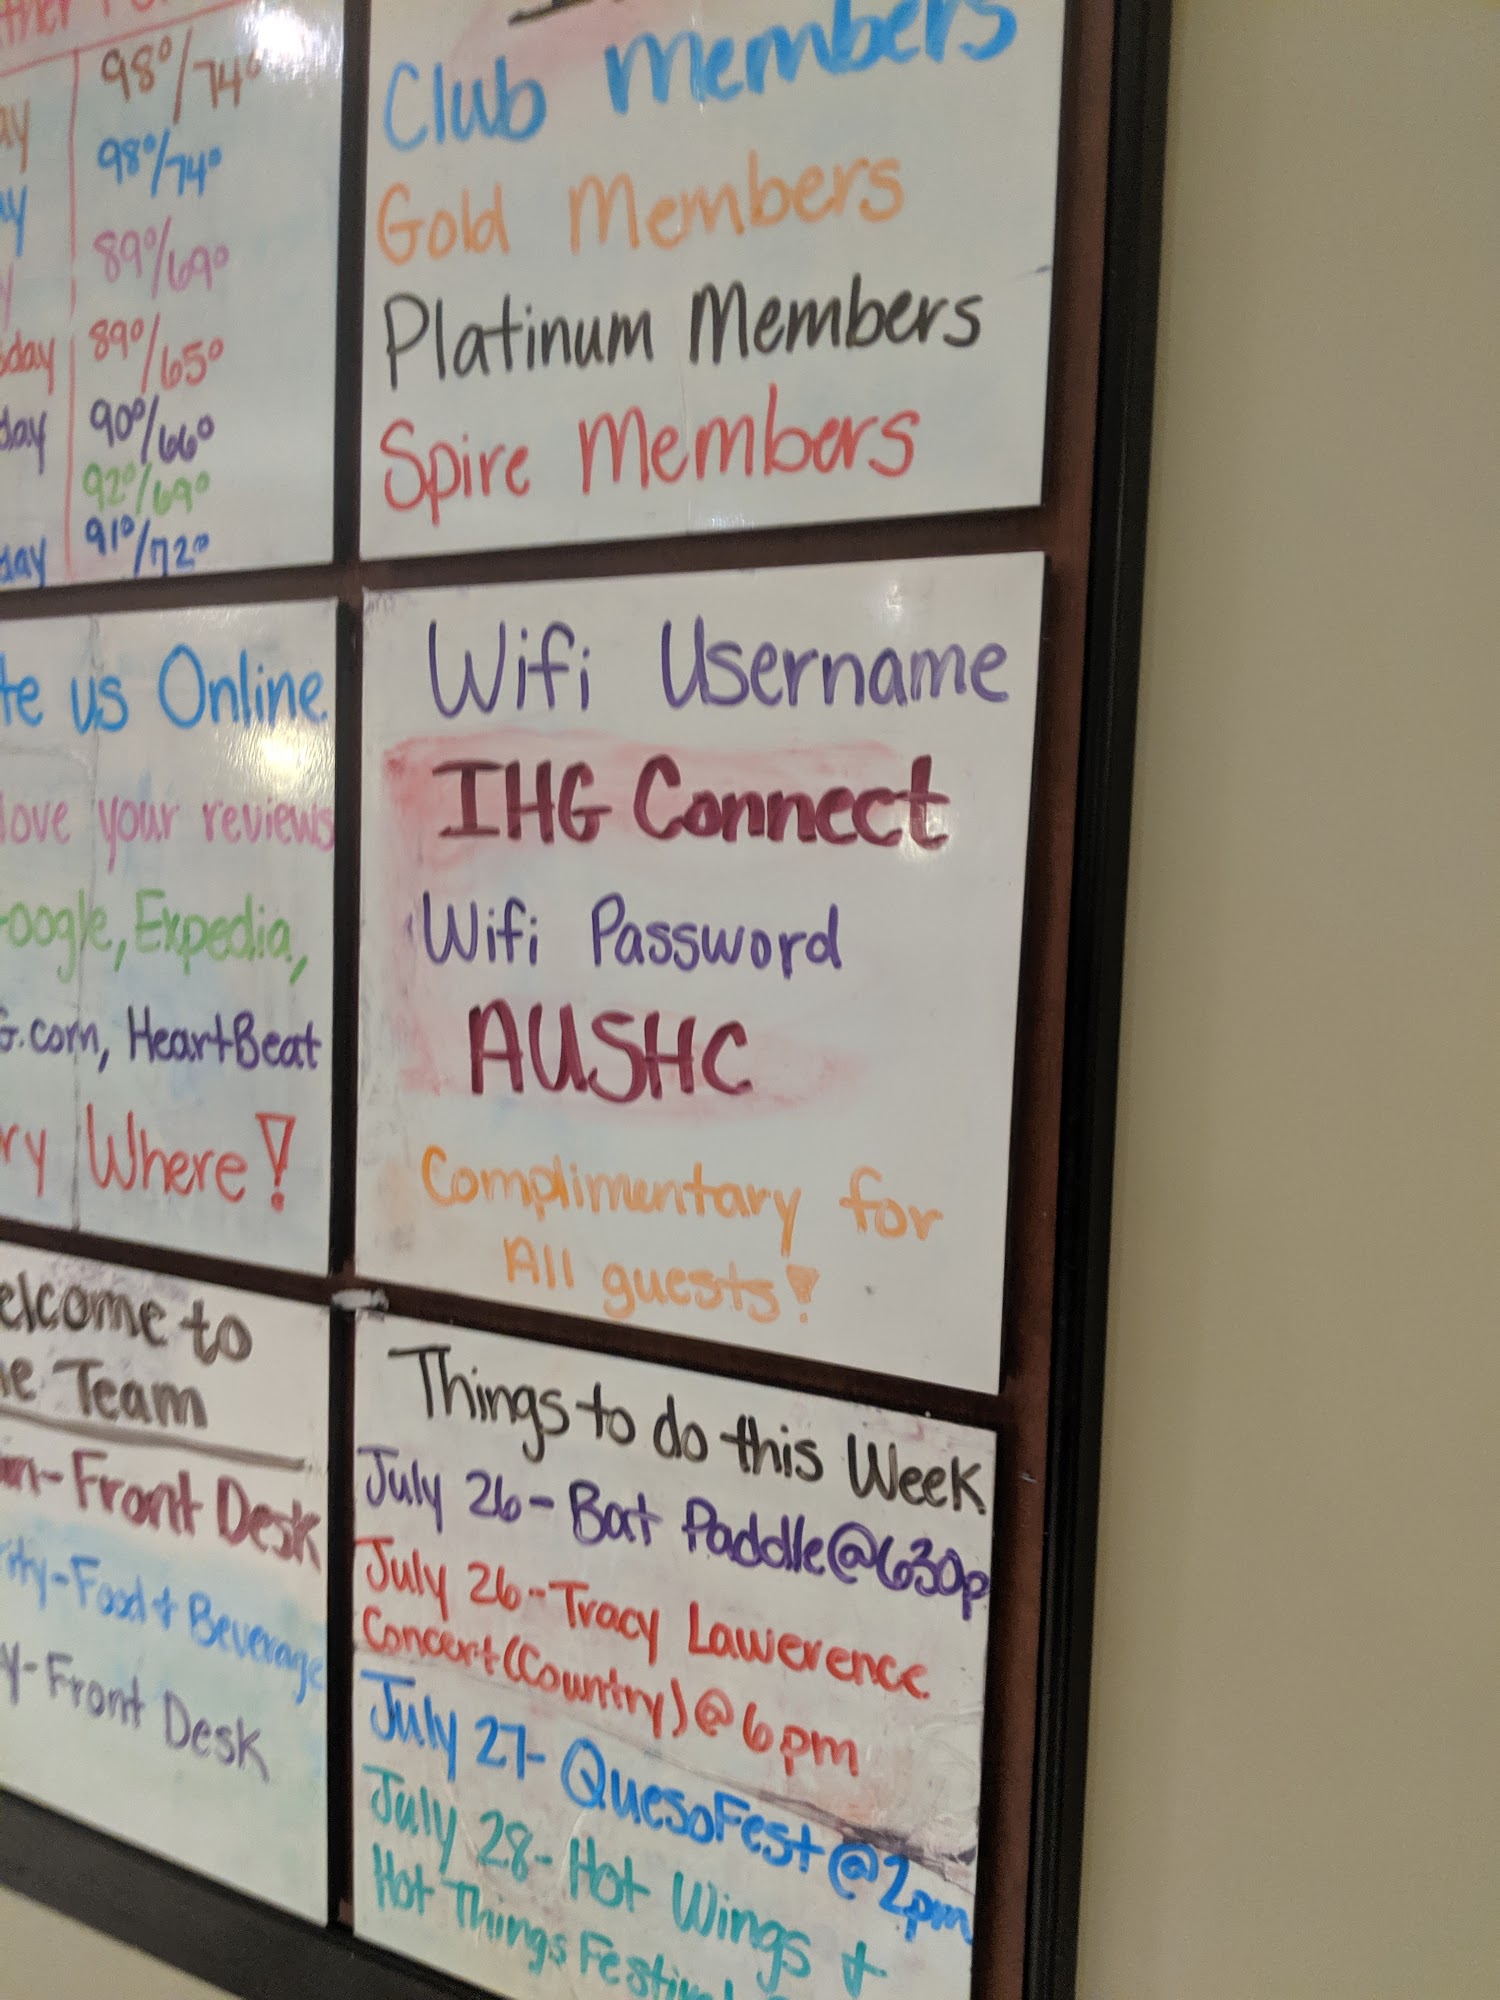 98°/74°
98°/74°
89°/69°
89°/65°
90°/66°
92°/69°
91°/72°
Club Members
Gold Members
Platinum Members
Spire Members
us Online.
love your reviews
oogle, Expedia,
G.com, HeartBeat
ry Where!
Wifi Username
IHG Connect
Wifi Password
AUSHC
Complimentary for
All guests!
elcome to
he Team
- Front Desk
ity - Food + Beverage
y - Front Desk
Things to do this Week
July 26 - Bat Paddle @ 630p
July 26 - Tracy Lawerence
Concert (Country) @ 6pm
July 27 - QuesoFest @ 2pm
July 28 - Hot Wings +
Hot Things Festival